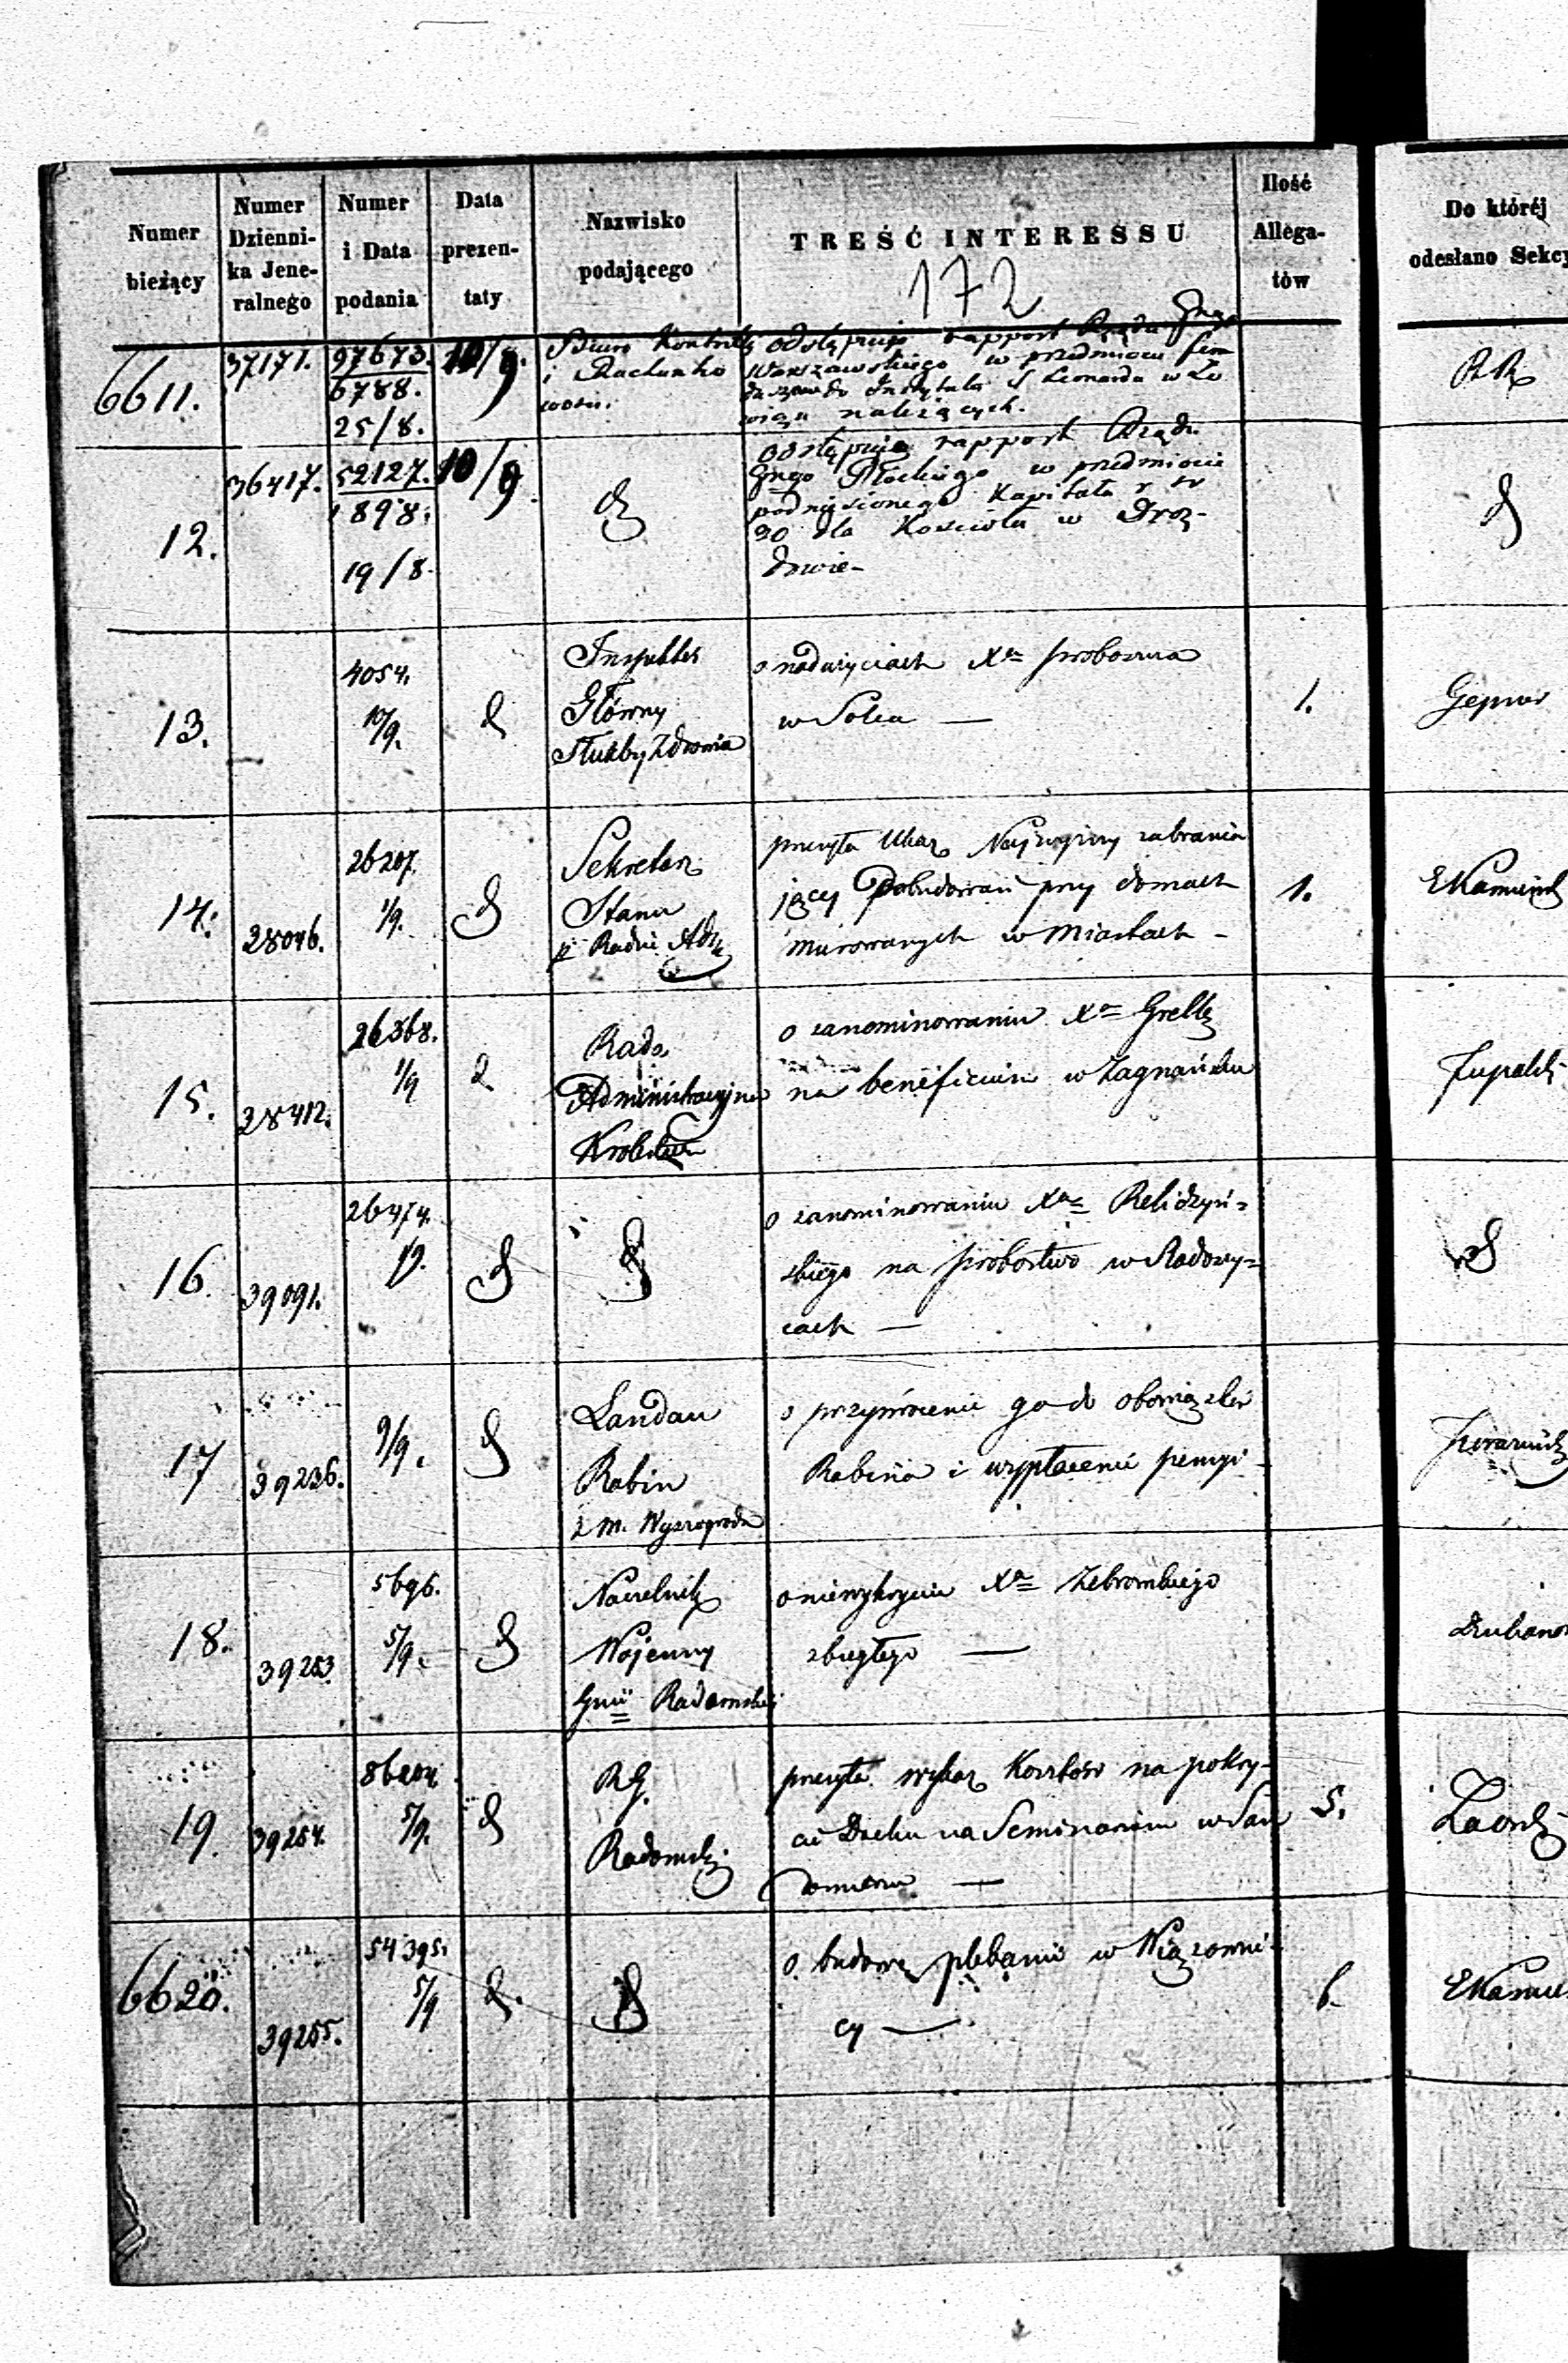 Numer bieżący
Numer Dzienni- ka Jene- ralnego
Numer i Data podania
Data prezen- taty
Nazwisko podającego
TREŚĆ INTERESSU
172
Ilość Allega- tów
Do któréj odesłano Sekcy
6611.
37171.
97673.
6788.
25/8.
10/9.
Biuro Kontrolli
i Rachunko
wości.
odstępuje rapport Rządu Gngo
Warszawskiego w przedmiocie fun
duszów do Instytutu S Leonarda w Ło
wiczu należących.
12.
36417.
52127.
1898.
19/8.
10/9.
odstępuje rapport Rządu
Gngo Płockiego w przedmiocie
podniesionego Kapitału
dla Kościoła w Droz-
dowie-
13.
4054.
10/9.
Inspektor
Główny
Służby Zdrowia
o nadużyciach Xa proboszcza
w Solcu —
1.
14.
28046.
26207.
1/9.
Sekretarz
Stanu
Radzie Adm
przesyła Ukaz Najwyższy zabrania
jący Pobudowań przy domach
murowanych w Miastach -
1.
15.
28412.
26368.
1/9
Rada
Administracyjna
Królestwa
o zanominowaniu Xa
na beneficium w Zagnańsku
16.
39091.
26474.
1/9.
o zanominowaniu Xa
skiego na probostwo w Radoszy-
cach —
17
39236.
9/9.
Landau
Rabin
z m. Wyszogroda
o przywrócenie go do obowiązków
Rabina i wypłacenie pensyi -
18.
39253.
5696.
5/9.
Naczelnik
Wojenny
Gnii Radomskiej
o niewykryciu Xa Zebrowskiego
zbiegłego —
19.
39254.
86204
5/9.
RG.
Radomski
przesyła wykaz Kosztów na pokry-
cie Dachu na Seminarium w San
domierzu —
5.
6620.
39255.
54395.
5/9
o budowę plebanii w Wiązowni-
cy —
6.